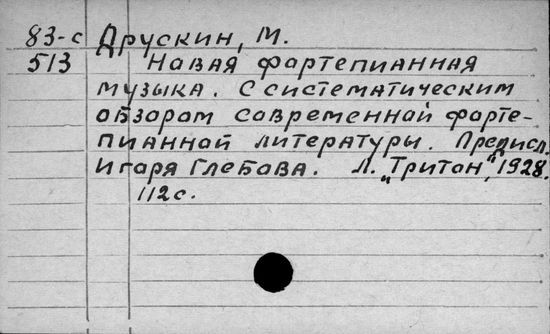 83-с Друскин, М.
513 Новая фортепианная
музыка. С систематическим
обзором современной форте-
пианной литературы. Предисл.
Игоря Глебова. Л. „Тритон", 1928.
112 с.